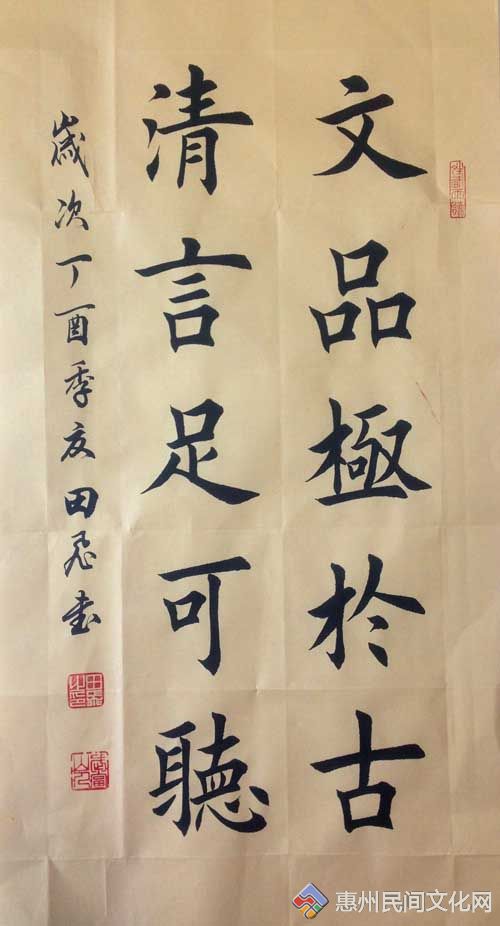 文品極於古
清言足可聽
歲次丁酉季夏田忍书
惠州民间文化网